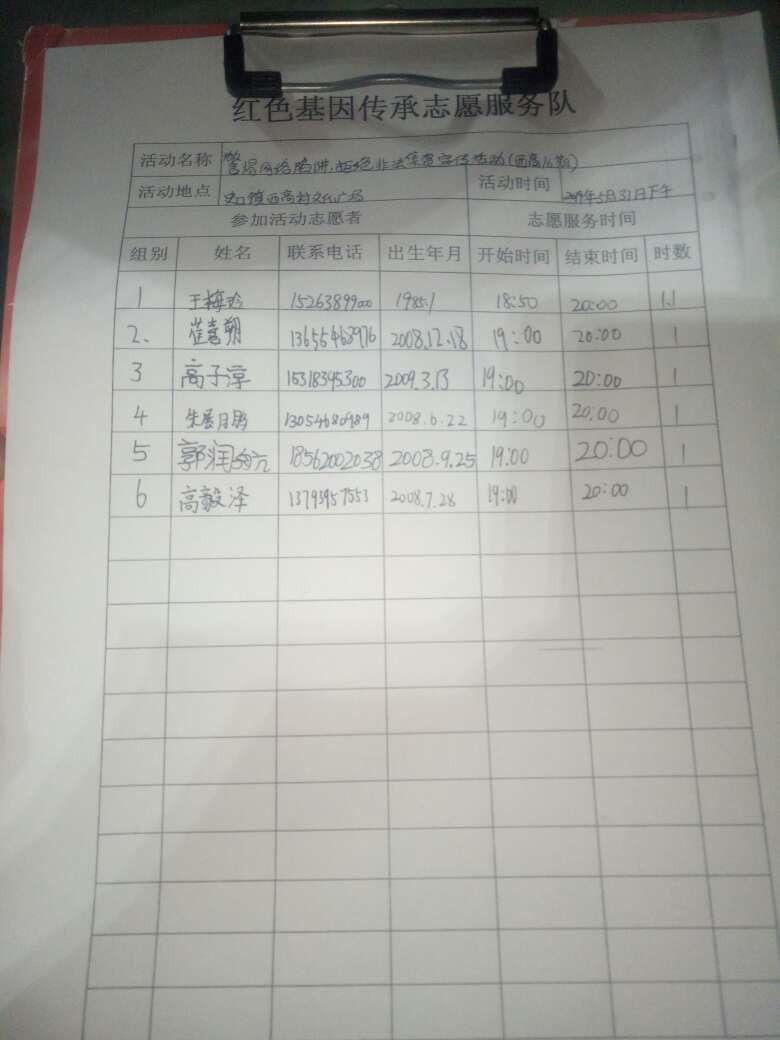 红色基因传承志愿服务队
活动名称 警惕网络陷阱,拒绝非法集资宣传活动(西高 活动时间
活动地点 西高村文化广场 2019年5月31日下午
参加活动志愿者 志愿服务时间
组别 姓名 联系电话 出生年月 开始时间 结束时间 时数
1 王梅玲 15263899000 1985.1 18:50 20:00 1.1
2、 崔喜朔 13656468976 2008.12.18 19:00 20:00 1
3 高子淳 15318395300 2009.3.13 19:00 20:00 1
4 13054680989 2008.6.22 19:00 20:00 1
5 郭润 18562002038 2008.9.25 19:00 20:00 1
6 高毅泽 13793957553 2008.7.28 19:00 20:00 1